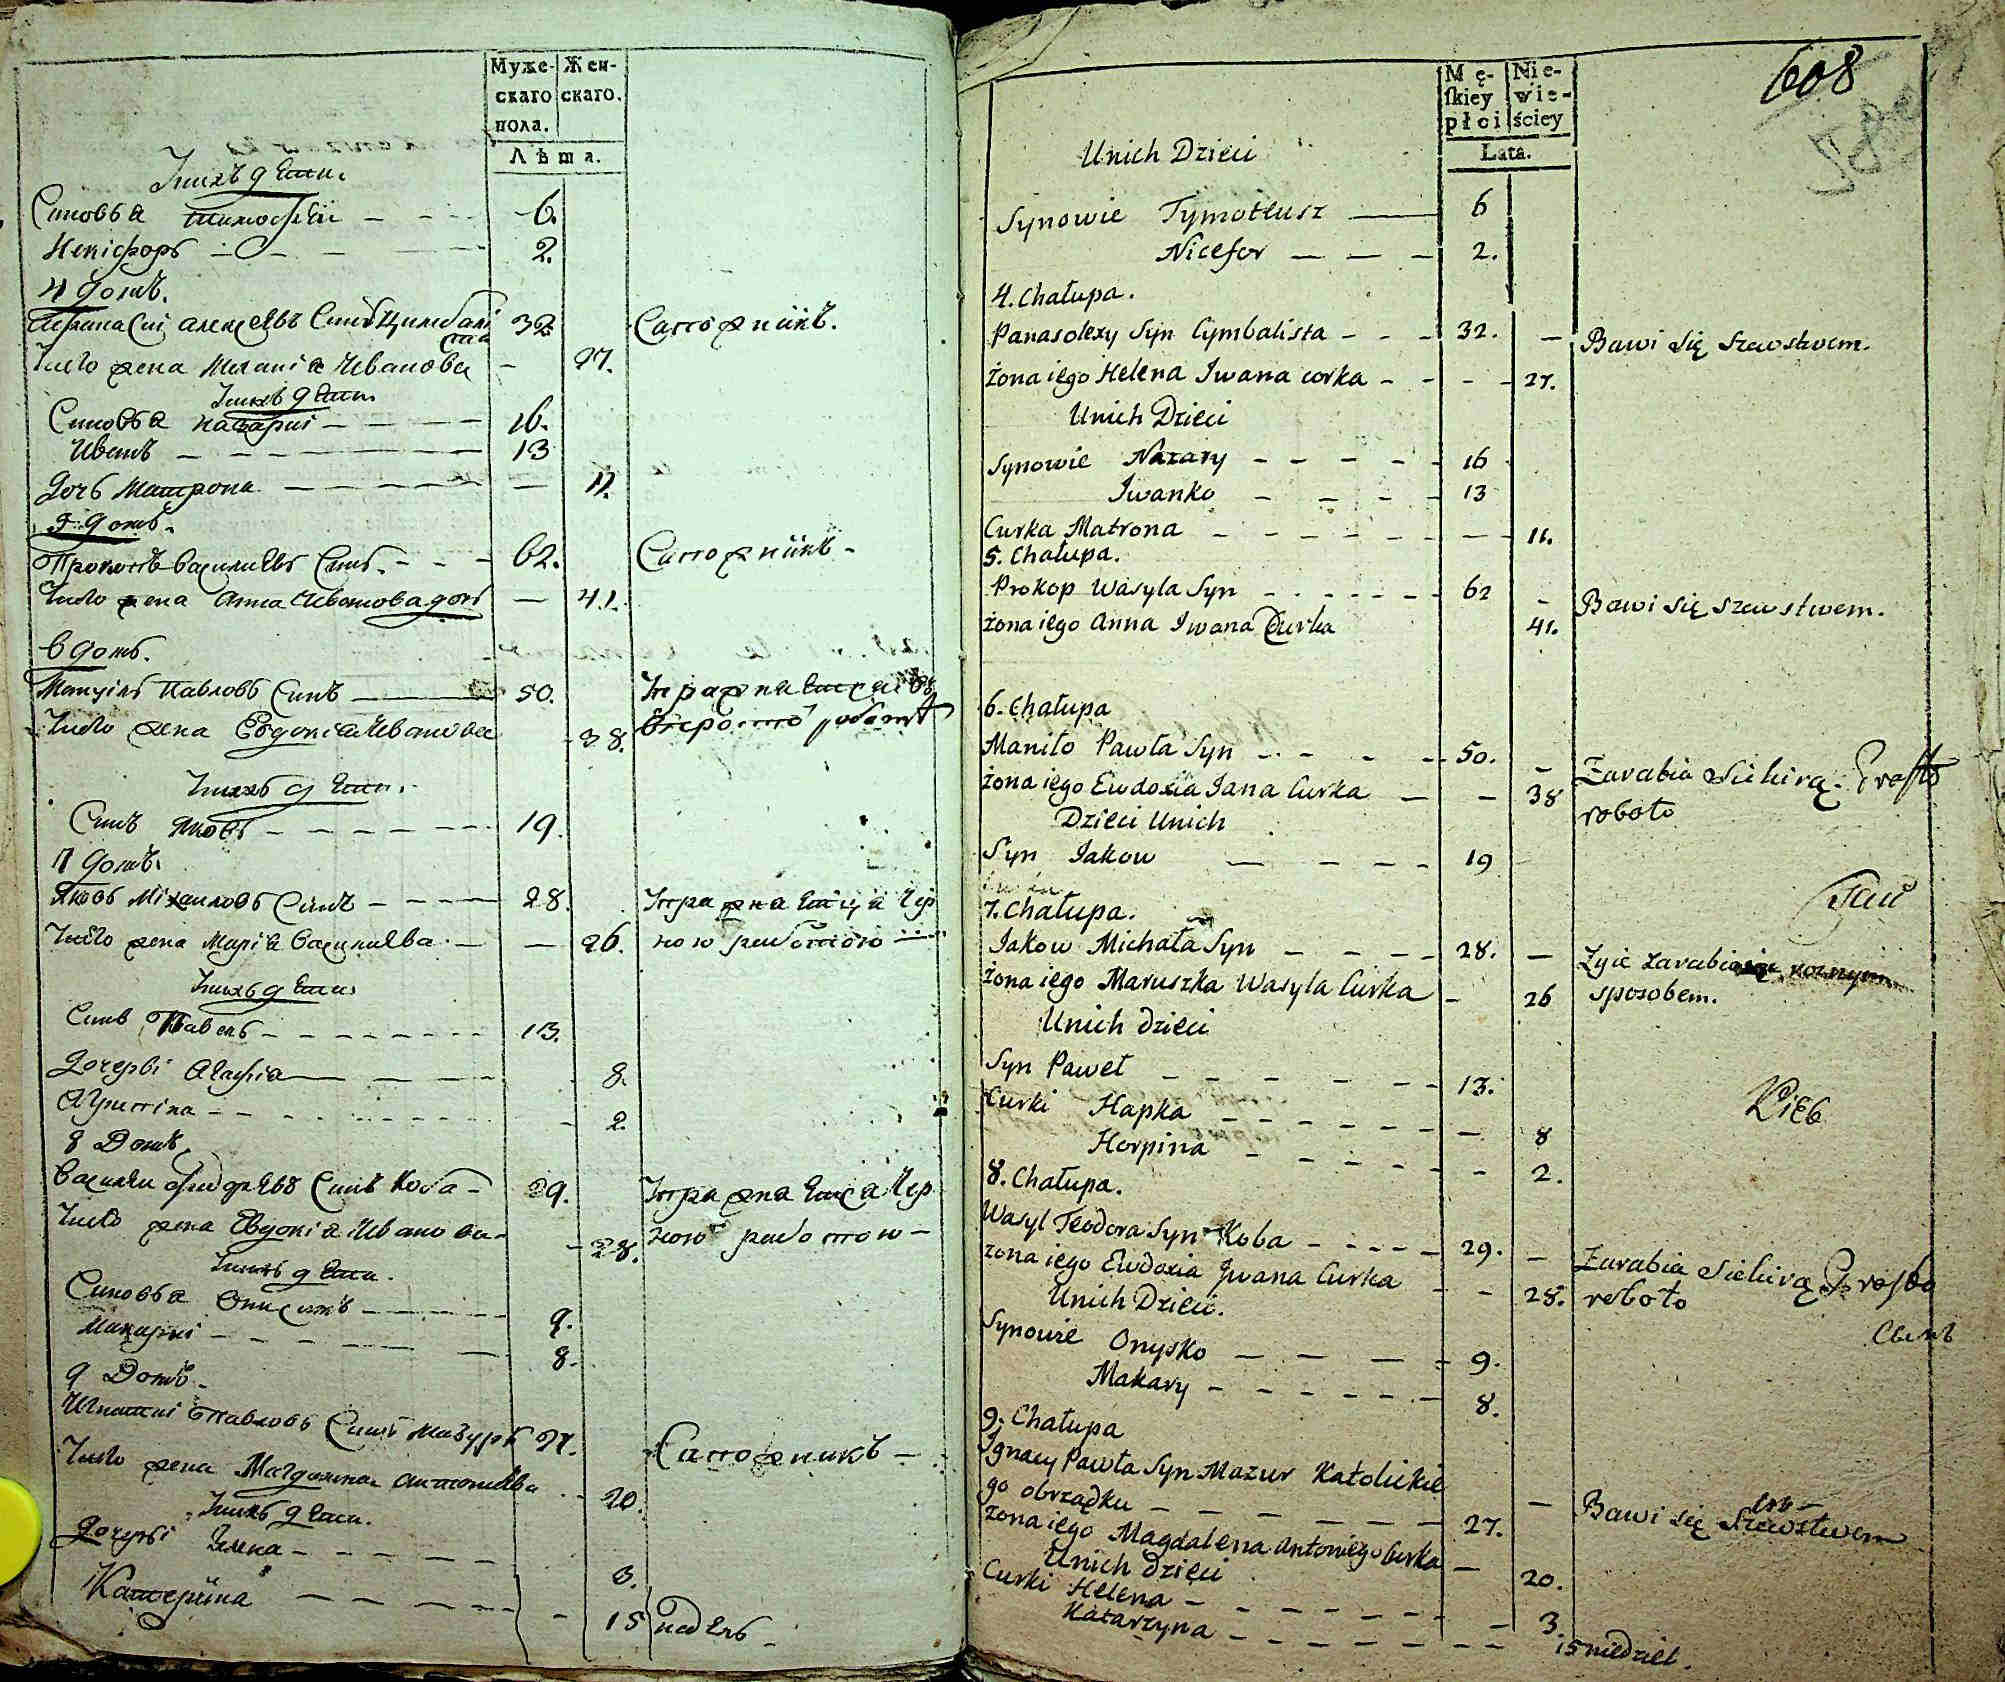 Муже-
скаго
пола.
Жен-
скаго.
Лѣта.
У нихъ дети.
Синовья Тимофей — 6.
Никіфоръ — 2.
4 Домъ.
Афанасіи Алексѣевъ Синъ Цимбалі
ста 32
Сапожникъ.
У него жена Меланія Иванова — 27.
У нихъ дети
Синовья Назарій — 16.
Иванъ — 13
Дочь Матрона — 11.
5 Домъ.
Прокопъ Василіевъ Синъ. — 62.
Сапожникъ —
У него жена Анна Иванова дочь — 41.
6 Домъ.
Мануілъ Павловъ Синъ — 50.
У него жена Евдокія Иванова 38.
У нихъ дети.
Синъ Яковъ — 19.
7 Домъ.
Яковъ Міхаиловъ Синъ — 28.
Упражнаеться чер
У него жена Марія Василиева — 26.
ною работою
У нихъ дети
Синъ Павелъ — 13.
Дочерѣи Агафія — 8.
Агрипина — 2.
8 Домъ.
Василіи Фиодоревъ Синъ Коба — 29.
Упражнаеться чер
У него жена Евдокія Иванова — 28.
ною работою —
У нихъ дети.
Синовья Онисимъ — 9.
Макарій — 8.
9 Домъ.
Игнатіи Павловъ Синъ Мазуръ 27.
Сапожникъ —
У него жена Магдалина Антониева 20.
У нихъ дети.
Дочерѣи Елена — 3.
Катерина — 15 недель —
608
Mę-
skiey
płci
Nie-
wie-
ściey
Lata.
Unich Dzieci
Synowie Tymoteusz — 6
Nicefor — 2.
4. Chałupa.
Panasolexy Syn Cymbalista — 32. —
Bawi się szewstwem.
żona iego Helena Iwana corka — 27.
Unich Dzieci
Synowie Nazary — 16
Iwanko — 13
Curka Matrona — 11.
5. Chałupa.
Prokop Wasyla Syn — 62 —
Bawi się szewstwem.
żona iego Anna Iwana Curka 41.
6. Chałupa
Maniło Pawła Syn — 50. —
Zarabia siekirą Prosto
żona iego Ewdoxia Jana Curka — 38
roboto
Dzieci Unich
Syn Jakow — 19
7. Chałupa.
Jakow Michała Syn — 28. —
Zyie zarabiaiąc roznym
żona iego Maruszka Wasyla Curka — 26
sposobem.
Unich dzieci
Syn Paweł — 13.
Curki Hapka — 8
Horpina — 2.
8. Chałupa.
Wasyl Teodora Syn Koba — 29. —
Zarabia siekirą Prosto
żona iego Ewdoxia Jwana Curka — 28.
roboto
Unich Dzieci.
Synowie Onysko — 9.
Makary — 8.
9. Chałupa
Ignacy Pawła Syn Mazur Katolickie
go obrządku — 27. —
Bawi się Szewstwem
żona iego Magdalena Antoniego Curka — 20.
Unich dzieci
Curki Helena — 3.
Katarzyna — 15 niedziel.